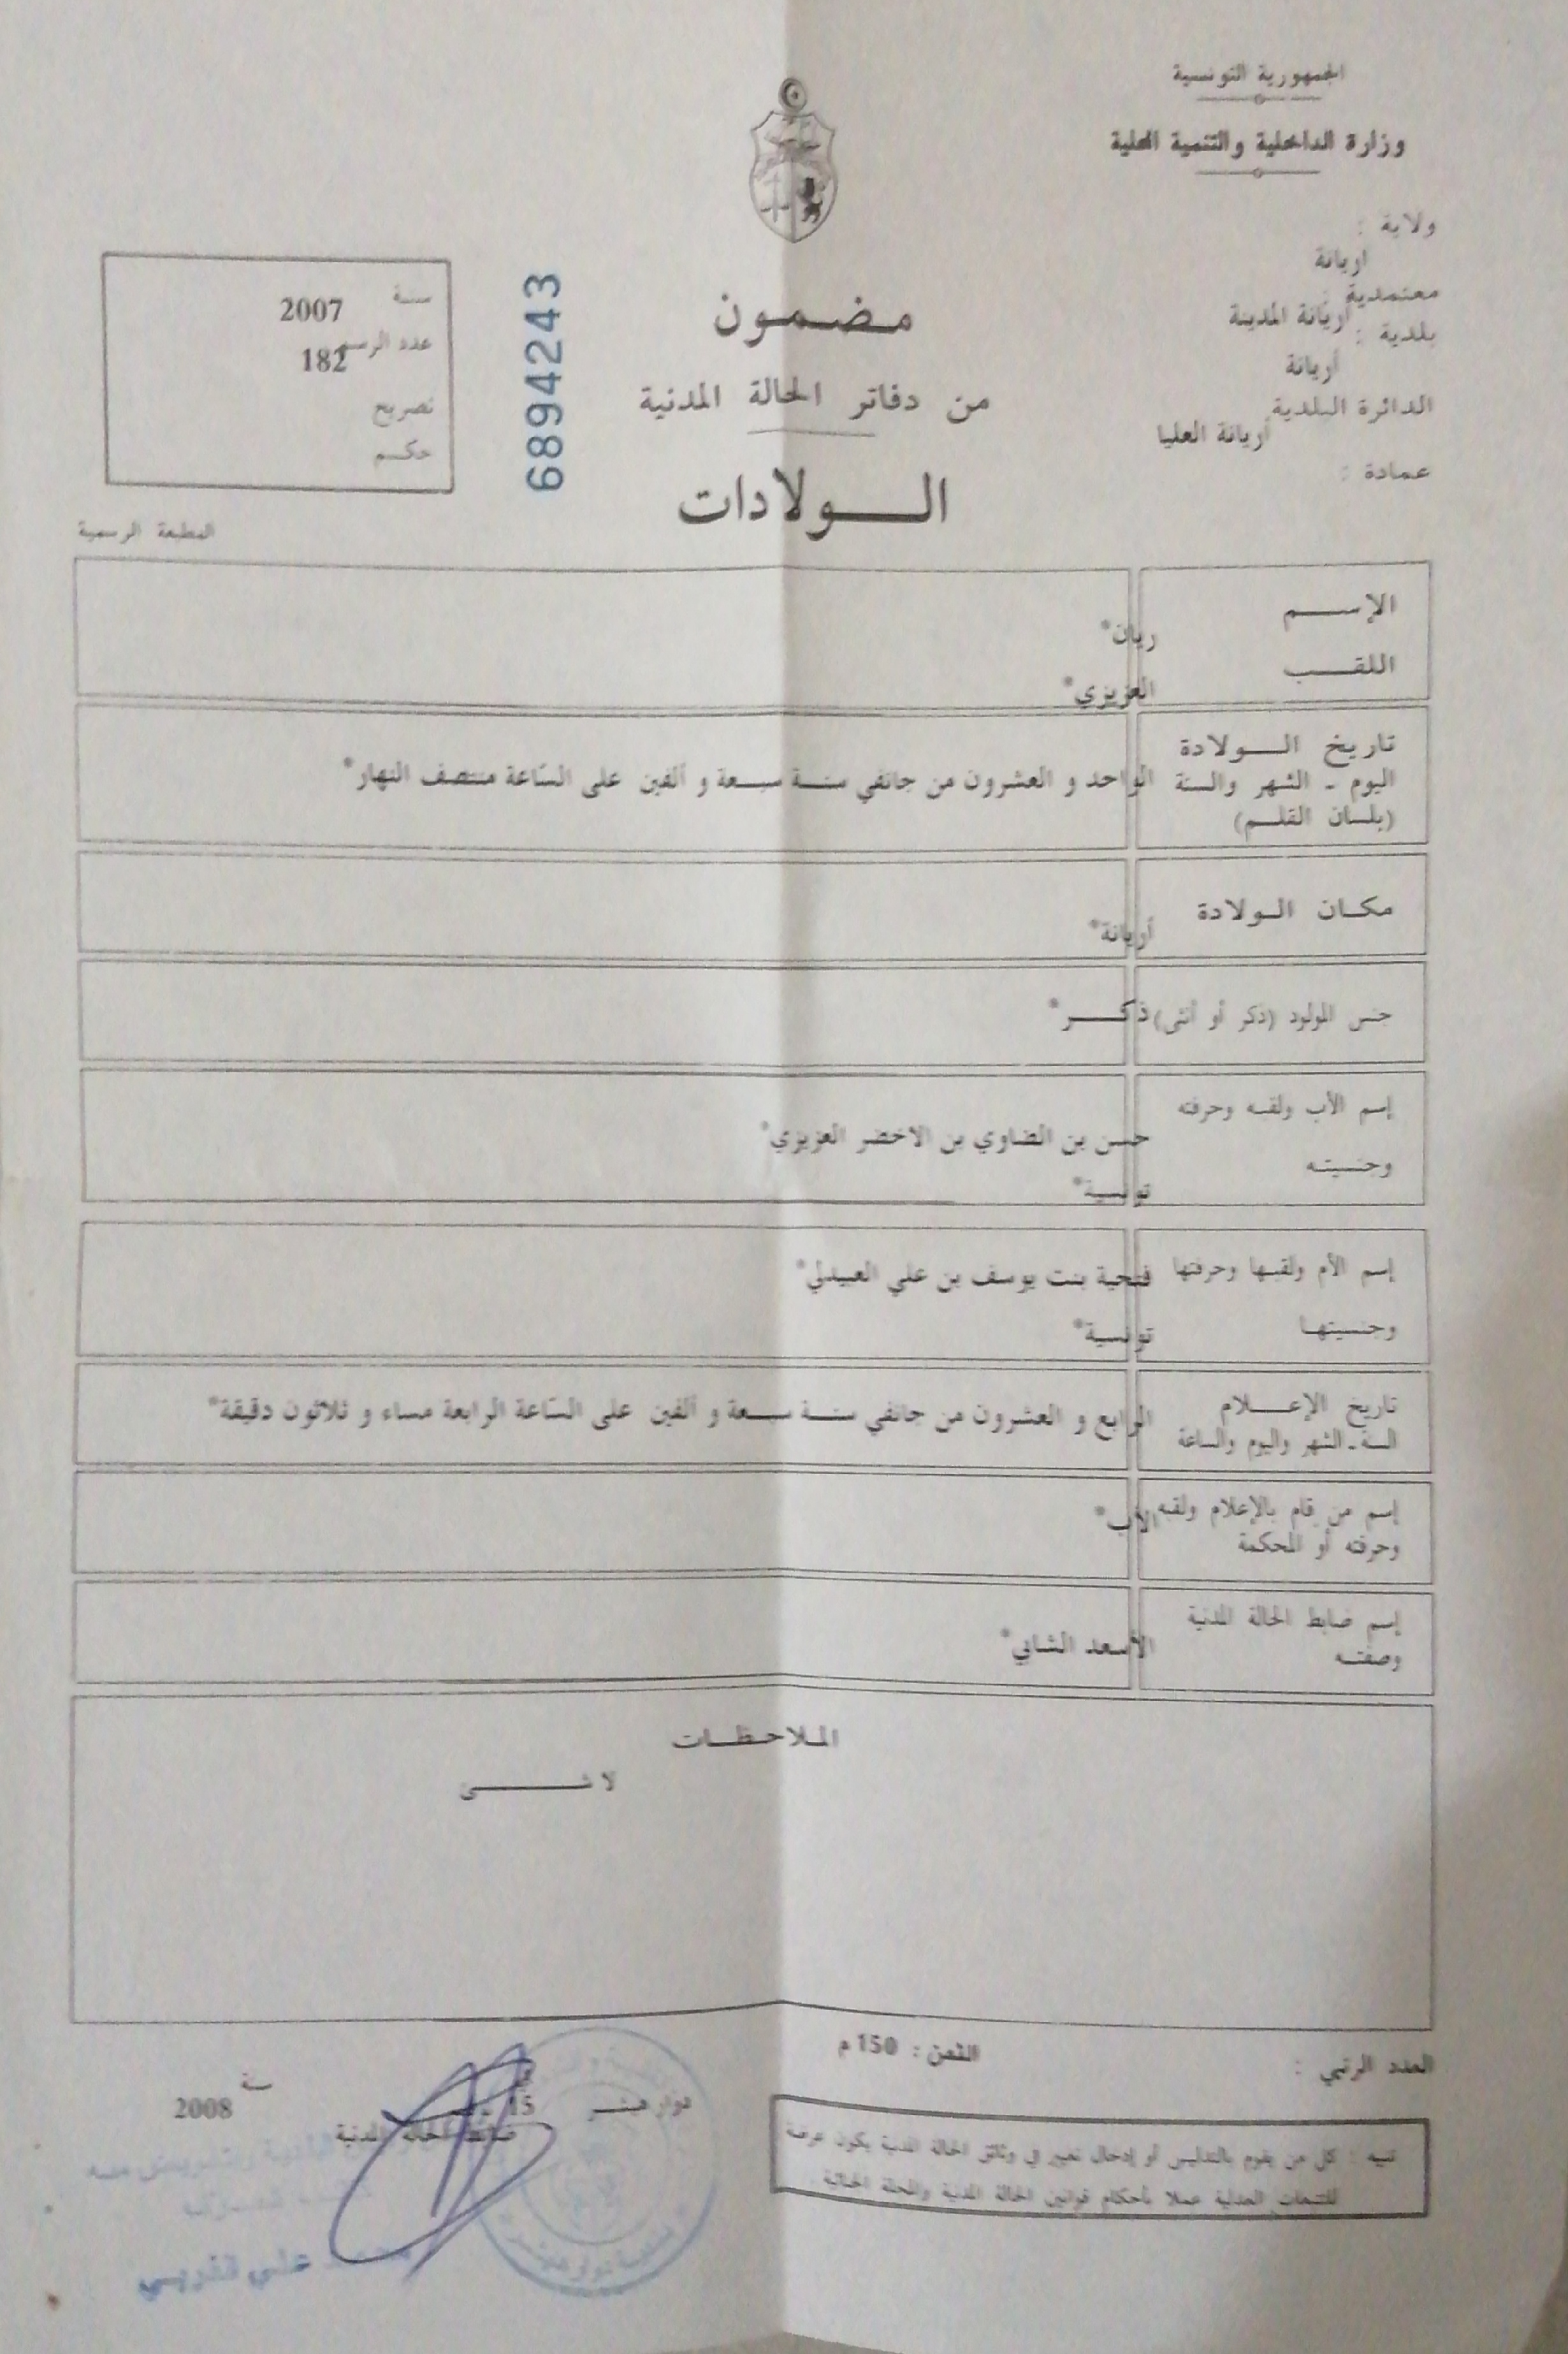 الجمهورية التونسية
وزارة الداخلية والتنمية المحلية
ولاية :
اريانة
معتمدية :
أريانة المدينة
بلدية :
أريانة
الدائرة البلدية
أريانة العليا
عمادة :
مضمون
من دفاتر الحالة المدنية
الولادات
6894243
سنة 2007
عدد الرسم 182
تصريح
حكم
المطبعة الرسمية
الإسم ريان*
اللقب العزيزي*
تاريخ الولادة
اليوم - الشهر والسنة الواحد و العشرون من جانفي سنة سبعة و ألفين على السّاعة منتصف النهار*
(بلسان القلم)
مكان الولادة أريانة*
جنس المولود (ذكر أو أنثى) ذكر*
إسم الأب ولقبه وحرفته حسن بن الضاوي بن الاخضر العزيزي*
وجنسيته تونسية*
إسم الأم ولقبها وحرفتها فتحية بنت يوسف بن علي العبيدلي*
وجنسيتها تونسية*
تاريخ الإعلام الرابع و العشرون من جانفي سنة سبعة و ألفين على السّاعة الرابعة مساء و ثلاثون دقيقة*
السنة - الشهر واليوم والساعة
إسم من قام بالإعلام ولقبه الأب*
وحرفته أو المحكمة
إسم ضابط الحالة المدنية الأسعد الشابي*
وصفته
الملاحظات
لا شى
العدد الرتبي :
الثمن : 150 م
دوار هيشر
15
سنة
2008
ضابط الحالة المدنية
تنبيه : كل من يقوم بالتدليس أو إدخال تغيير في وثائق الحالة المدنية يكون عرضة
للتتبعات العدلية عملا بأحكام قوانين الحالة المدنية والمجلة الجنائية .
علي